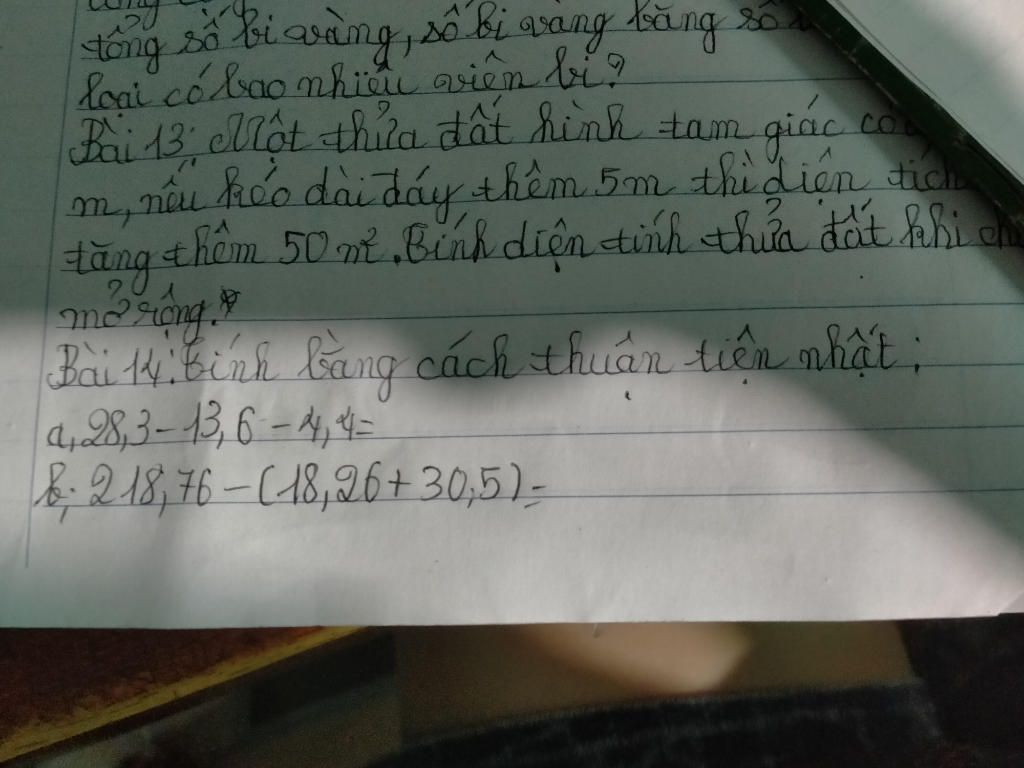 tổng số bi vàng, số bi vàng bằng số
loại có bao nhiêu viên bi?
Bài 13: Một thửa đất hình tam giác có
m, nếu kéo dài đáy thêm 5m thì diện tích
tăng thêm 50 m². Tính diện tính thửa đất khi
mở rộng.
Bài 14: Tính bằng cách thuận tiện nhất:
a, 28,3 - 13,6 - 4,4 =
b, 218,76 - (18,26 + 30,5) =